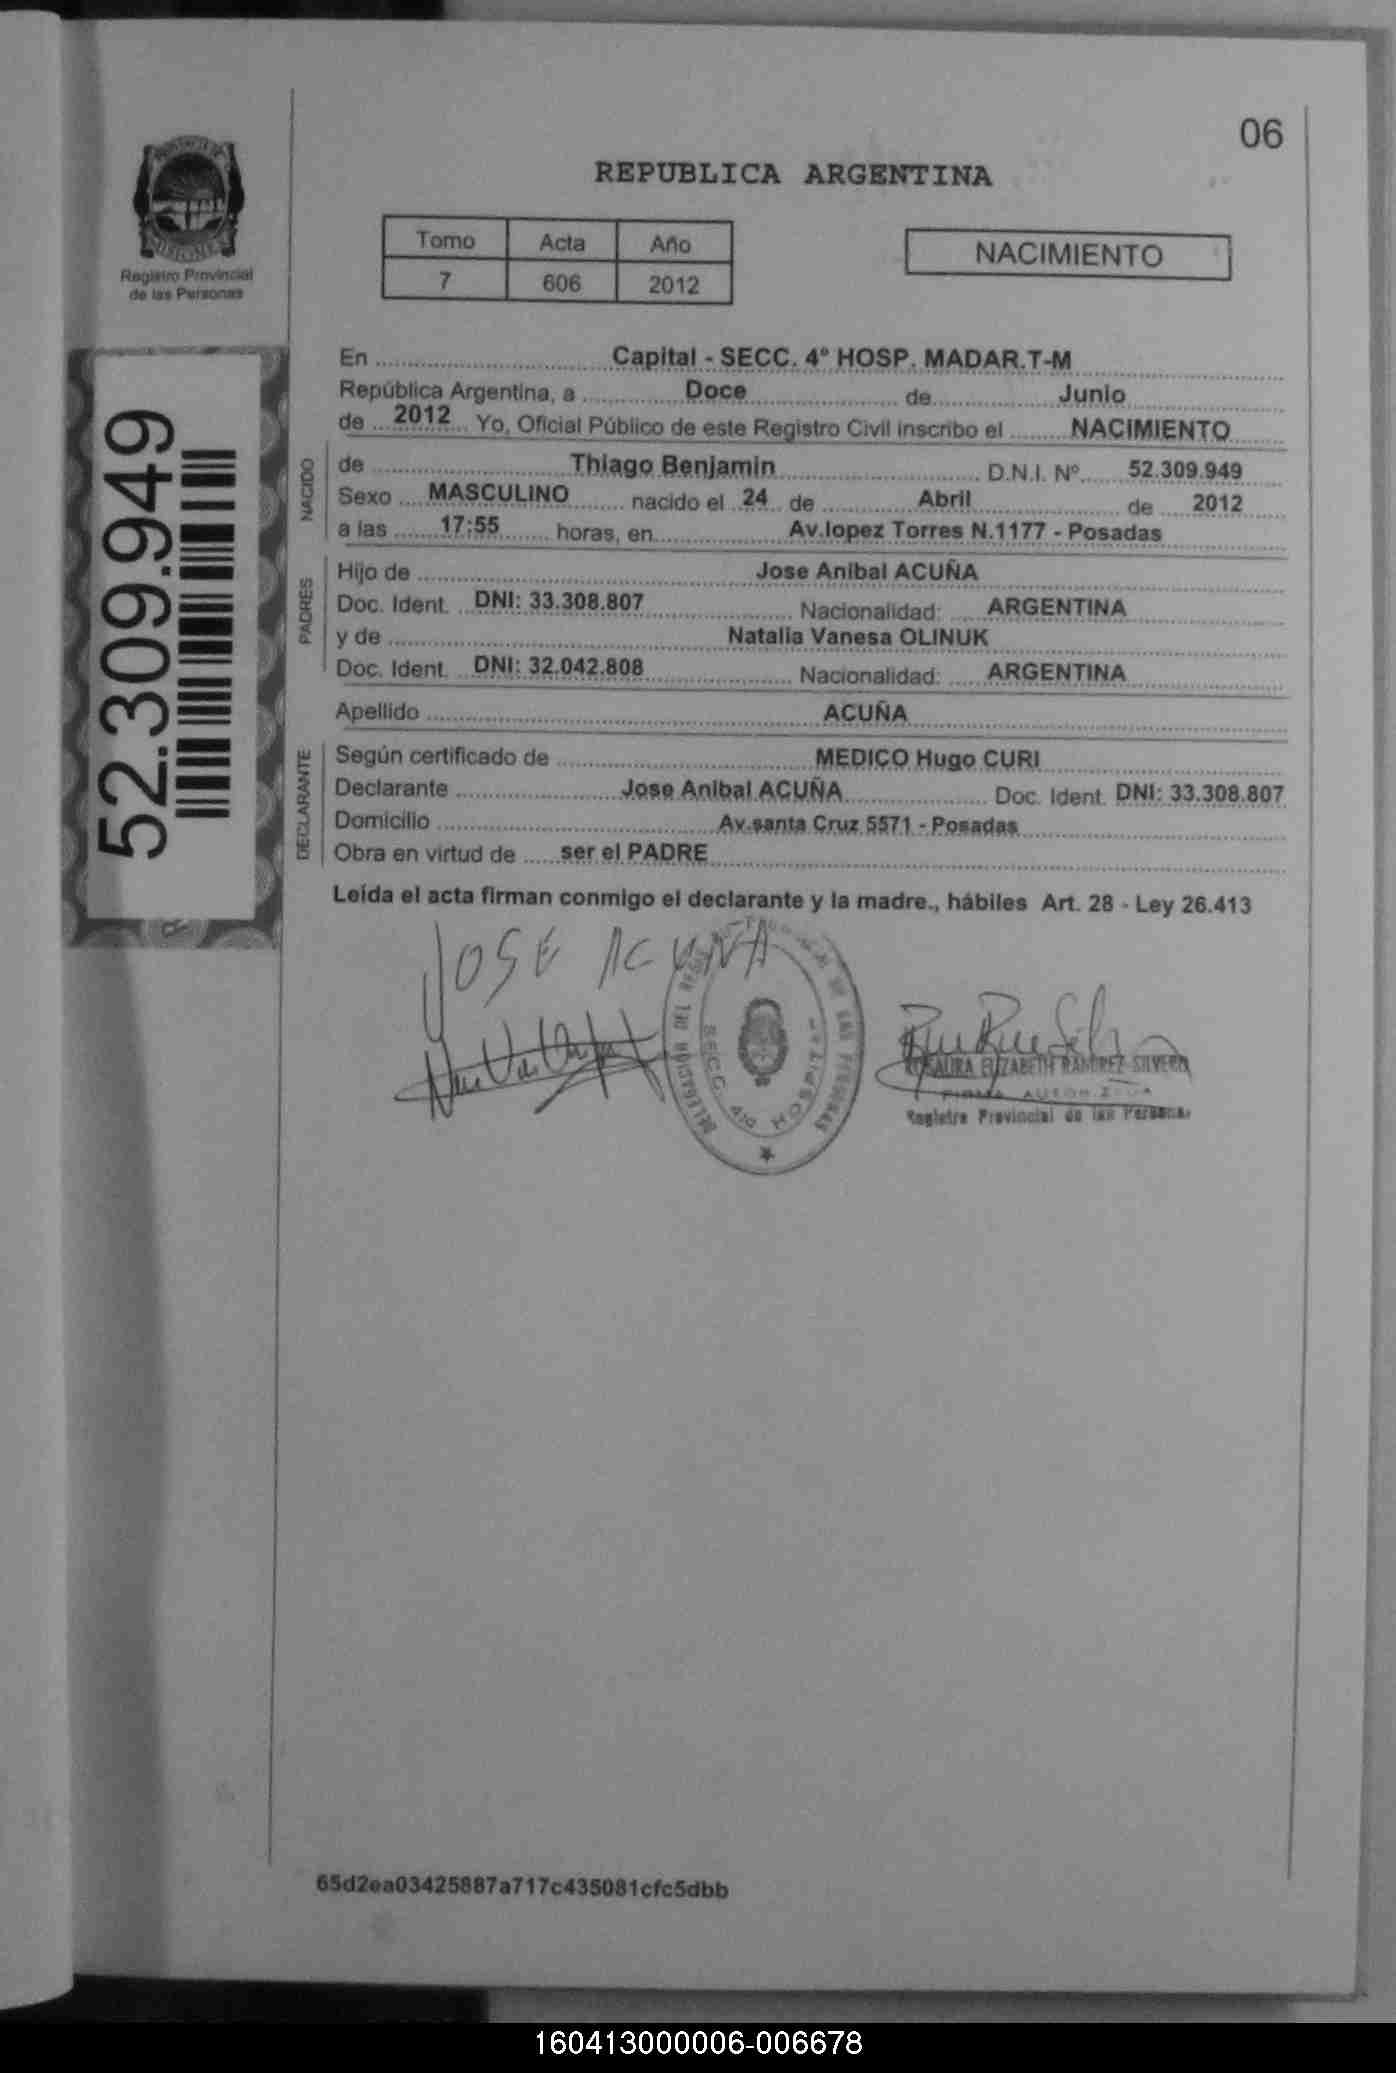 06
REPUBLICA ARGENTINA
Registro Provincial
de las Personas
Tomo Acta Año
7 606 2012
NACIMIENTO
52.309.949
En Capital - SECC. 4° HOSP. MADAR.T-M
República Argentina, a Doce de Junio
de 2012 Yo, Oficial Público de este Registro Civil inscribo el NACIMIENTO
NACIDO
de Thiago Benjamin D.N.I. Nº 52.309.949
Sexo MASCULINO nacido el 24 de Abril de 2012
a las 17:55 horas, en Av.lopez Torres N.1177 - Posadas
PADRES
Hijo de Jose Anibal ACUÑA
Doc. Ident. DNI: 33.308.807 Nacionalidad: ARGENTINA
y de Natalia Vanesa OLINUK
Doc. Ident. DNI: 32.042.808 Nacionalidad: ARGENTINA
Apellido ACUÑA
DECLARANTE
Según certificado de MEDICO Hugo CURI
Declarante Jose Anibal ACUÑA Doc. Ident. DNI: 33.308.807
Domicilio Av.santa Cruz 5571 - Posadas
Obra en virtud de ser el PADRE
Leída el acta firman conmigo el declarante y la madre., hábiles Art. 28 - Ley 26.413
JOSE ACUÑA
DELEGACION DEL DE LAS PERSONAS
SECC. 4ta HOSPITAL
ROSAURA ELIZABETH RAMIREZ SILVERO
FIRMA AUTORIZADA
Registro Provincial de las Personas
65d2ea03425887a717c435081cfc5dbb
160413000006-006678